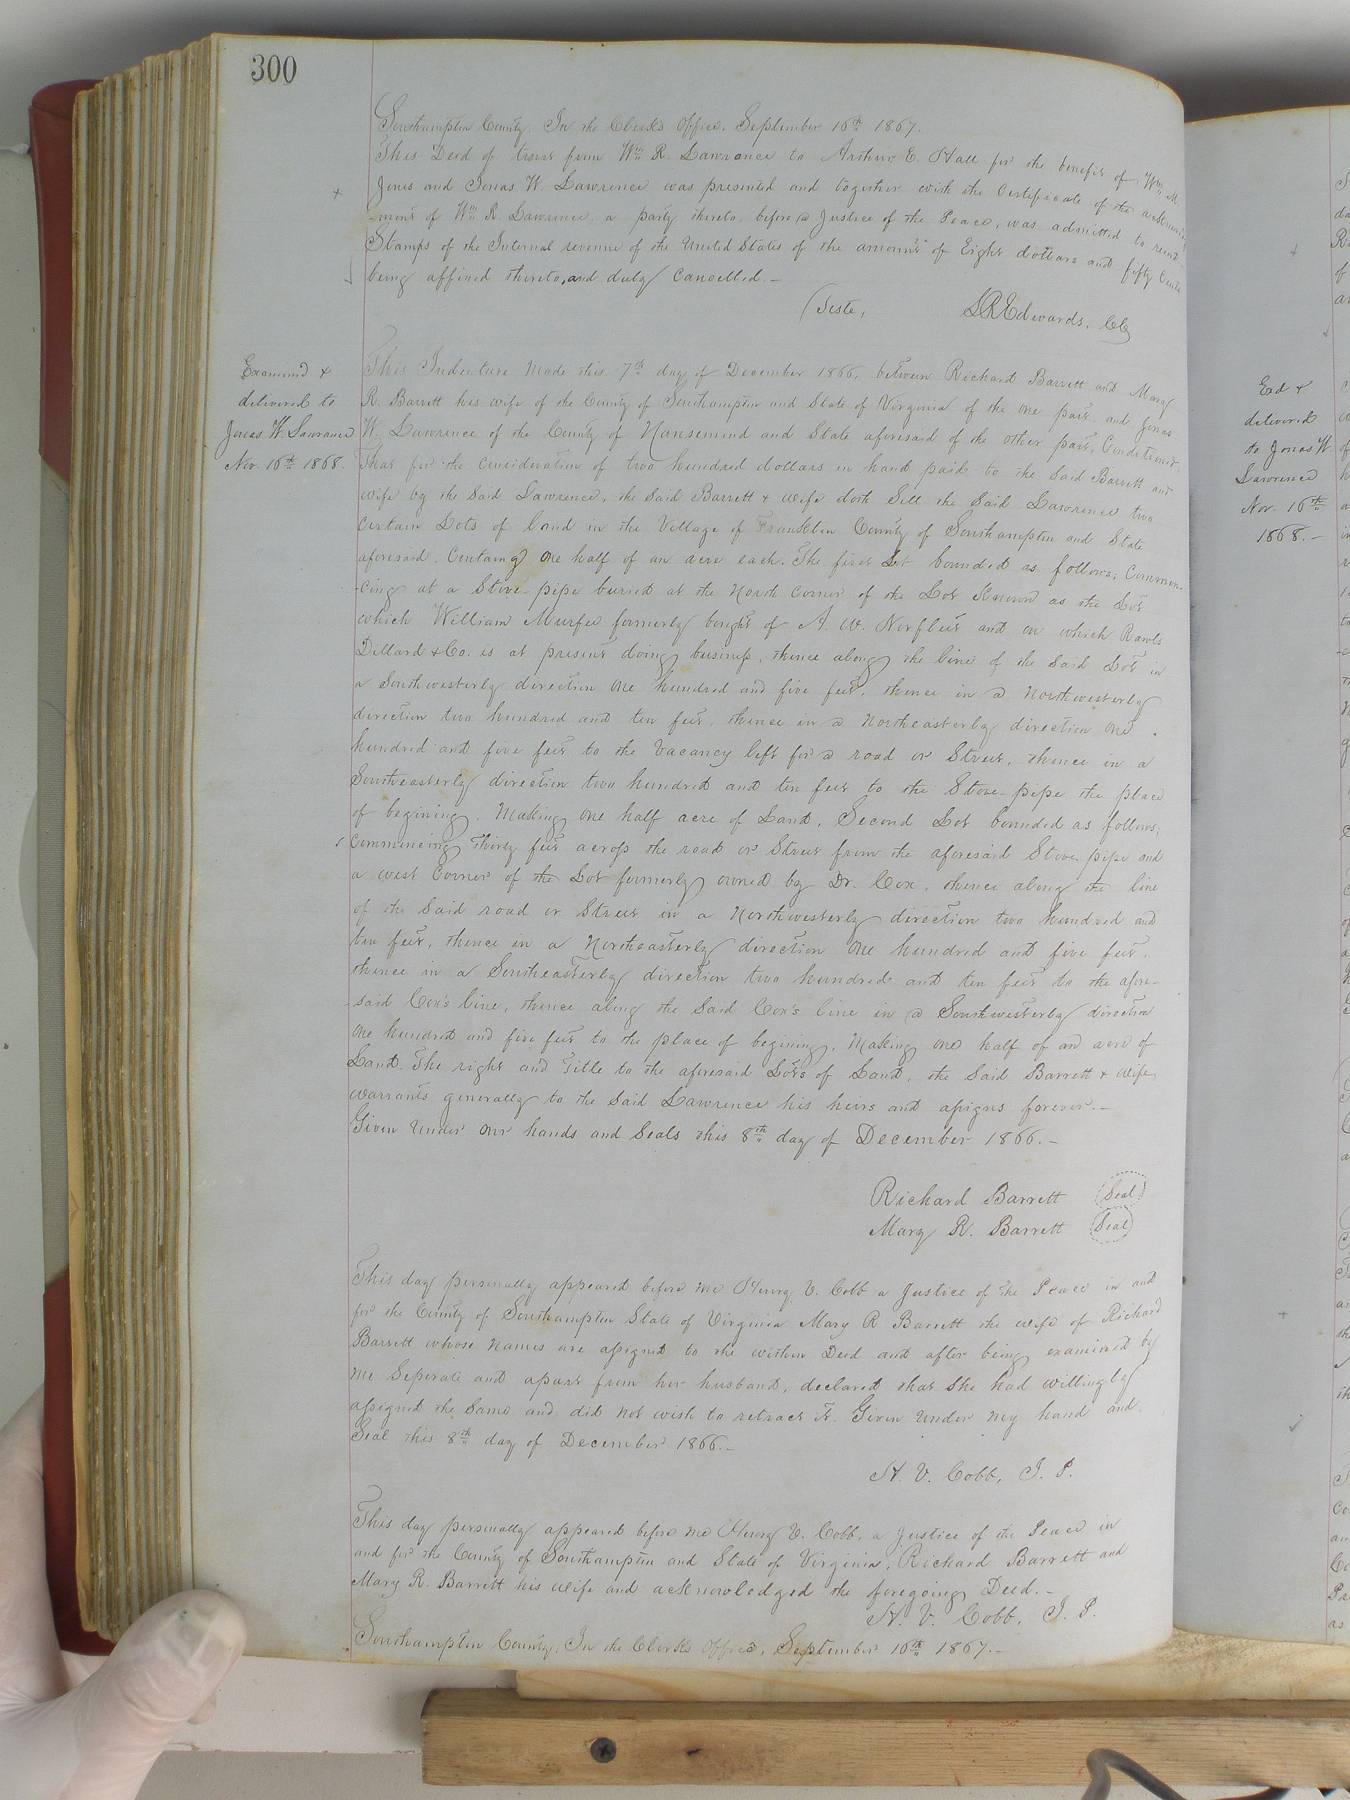 300
Southampton County. In the Clerks Office, September 16th 1867.
This Deed of trust from Wm R. Lawrence to Arthur E. Hall for the benefit of Wm M.
Jones and Jonas W. Lawrence was presented and together with the Certificate of the acknowledg
-ment of Wm R. Lawrence, a party thereto, before a Justice of the Peace, was admitted to record
Stamps of the Internal revenue of the United States of the amount of Eight dollars and fifty Cents
being affixed thereto, and duly cancelled.-
Teste, LREdwards, CC
Examined &
delivered to
Jonas W. Lawrence
Nov. 16th 1868.
This Indenture made this 7th day of December 1866. between Richard Barrett and Mary
R. Barrett his wife of the County of Southampton and State of Virginia of the one part and Jonas
W. Lawrence of the County of Nansemond and State aforesaid of the other part,
that for the consideration of two hundred dollars in hand paid to the said Barrett and
wife by the said Lawrence, the said Barrett & wife doth Sell the said Lawrence two
certain Lots of land in the Village of Franklin County of Southampton and State
aforesaid. Containg one half of an acre each. The first Lot bounded as follows; Commen-
-cing at a Stove-pipe buried at the North Corner of the Lot Known as the Lot
which William Murfee formerly bought of A. W. Norfleet and on which Rawls
Dillard & Co. is at present doing business, thence along the line of the said Lot in
a Southwesterly direction one hundred and five feet, thence in a Northwesterly
direction two hundred and ten feet, thence in a Northeasterly direction one
hundred and five feet to the Vacancy left for a road or Street, thence in a
Southeasterly direction two hundred and ten feet to the Stove-pipe the place
of begining. Making one half acre of Land. Second Lot bounded as follows;
Commencing Thirty feet across the road or Street from the aforesaid Stove pipe and
a west Corner of the Lot formerly owned by Dr. Cox, thence along the line
of the said road or Street in a Northwesterly direction two hundred and
ten feet, thence in a Northeasterly direction one hundred and five feet,
thence in a Southeasterly direction two hundred and ten feet to the afore-
-said Cox's line, thence along the said Cox's line in a Southwesterly direction
one hundred and five feet to the place of begining, Making one half of an acre of
Land. The right and Title to the aforesaid Lots of Land, the said Barrett & wife
warrants generally to the said Lawrence his heirs and assigns forever.-
Given Under our hands and Seals this 8th day of December 1866.-
Richard Barrett (Seal)
Mary R. Barrett (Seal)
This day personally appeared before me Henry V. Cobb a Justice of the Peace in and
for the County of Southampton State of Virginia Mary R Barrett the wife of Richard
Barrett whose names are assigned to the within Deed and after being examined by
me Seperate and apart from her husband, declared that she had willingly
assigned the same and did not wish to retract it. Given under my hand and
Seal this 8th day of December 1866.-
H. V. Cobb, J. P.
This day personally appeared before me Henry V. Cobb, a Justice of the Peace in
and for the County of Southampton and State of Virginia, Richard Barrett and
Mary R. Barrett his wife and acknowledged the foregoing Deed.-
H. V. Cobb, J. P.
Southampton County, In the Clerks Office, September 16th 1867.-
Exd &
delivered
to Jonas W.
Lawrence
Nov. 16th
1868.-